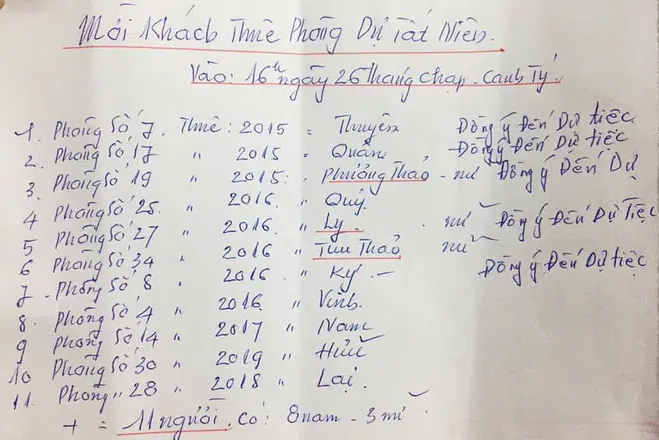 Mời Khách Thuê Phòng Dự Tất Niên.
Vào: 16h ngày 26 tháng chạp. Canh Tý.
1. Phòng Số 7. Thuê: 2015 = Thuyên Đồng ý Đến Dự tiệc
2. Phòng Số 17 " 2015 = Quân Đồng ý Đến Dự tiệc
3. Phòng Số 19 " 2015: Phương Thảo - nữ Đồng ý Đến Dự
4 Phòng Số 25 " 2016. " Quý.
5 Phòng Số 27 " 2016. " Ly. nữ Đồng ý Đến Dự Tiệc
6 Phòng Số 34 " 2016 " Thảo nữ
7 - Phòng Số 8 " 2016 " Ký - Đồng ý Đến Dự tiệc
8. Phòng Số 4 " 2016. " Vinh.
9 Phòng Số 14 " 2017 " Nam
10 Phòng Số 30 " 2019 " Hữu
11. Phòng " 28 " 2018 " Lại.
+ = 11 người. Có: 8 nam - 3 nữ.